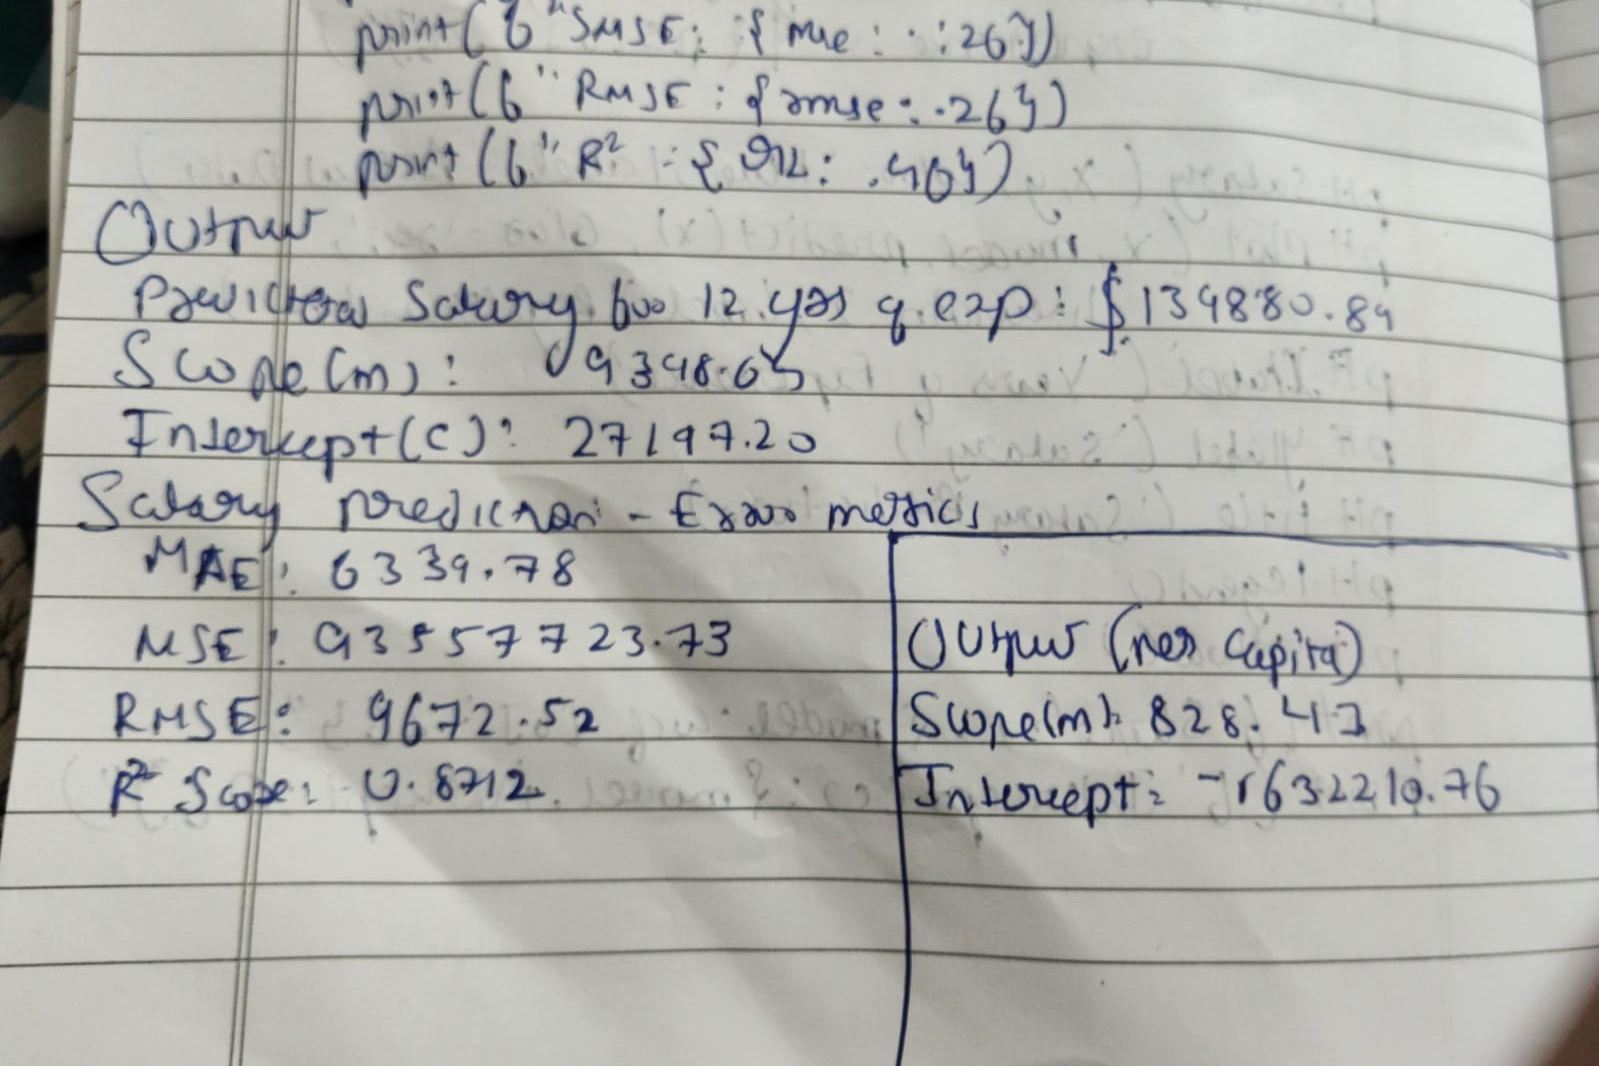 print(f"SMSE: {mse: .:26})
print(f"RMSE: {rmse: .26})
print(f"R² : {r2: .46})
Output
Predicted Salary for 12 yrs of exp: $139880.84
Slope(m): 9398.65
Intercept(c): 27197.20
Salary prediction - Error metrics
MAE: 6339.78
MSE: 93557723.73
RMSE: 9672.52
R² Score: 0.8712
Output (per capita)
Slope(m): 828.47
Intercept: -1632210.76